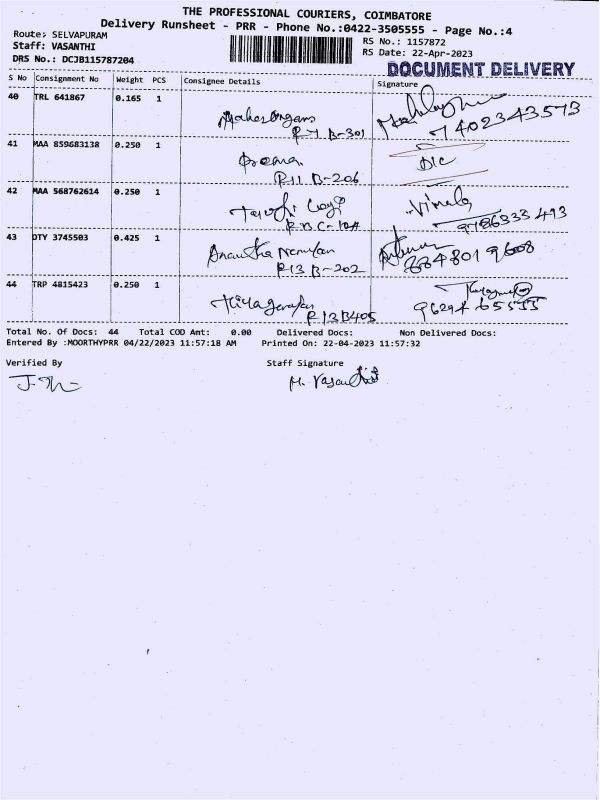 THE PROFESSIONAL COURIERS, COIMBATORE
Delivery Runsheet - PRR - Phone No.:0422-3505555 - Page No.:4
Route: SELVAPURAM
RS No.: 1157872
Staff: VASANTHI
RS Date: 22-Apr-2023
DRS No.: DCJB115787204
DOCUMENT DELIVERY
S No Consignment No Weight PCS Consignee Details Signature
40 TRL 641867 0.165 1
R-7 B-301 7402343573
41 MAA 859683138 0.250 1 Prema D/C
R11 B-206
42 MAA 568762614 0.250 1 Vimala
9786333493
43 DTY 3745503 0.425 1
R13 B-202
44 TRP 4815423 0.250 1
R13B405
Total No. Of Docs: 44 Total COD Amt: 0.00 Delivered Docs: Non Delivered Docs:
Entered By :MOORTHYPRR 04/22/2023 11:57:18 AM Printed On: 22-04-2023 11:57:32
Verified By Staff Signature
M. Vasanthi